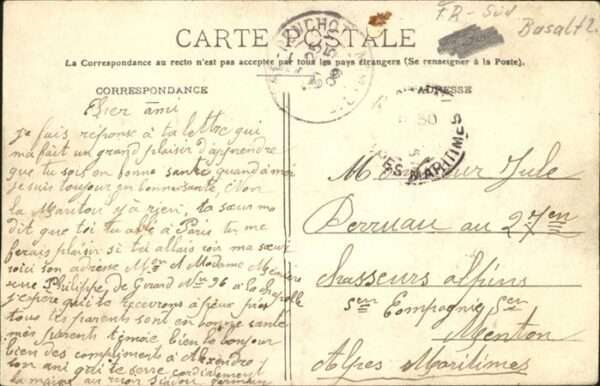 FR-Sud
Basalt 2.
CARTE POSTALE
La Correspondance au recto n'est pas acceptée par tous les pays étrangers (Se renseigner à la Poste).
CORRESPONDANCE
ADRESSE
Cher ami
je fais réponse à ta lettre qui
ma fait un grand plaisir d'apprendre
que tu sois en bonne santé quand à moi
je suis toujour en bonne santé,
la y a rien, ta sœur ma
dit que toi tu allé à Paris tu me
ferais plaisir si tu allais voir ma sœur
voici son adresse Mr et Madame
rue Philippe de Girard No 96 à la chapelle
j'espère qui te recevrons à
tous tes parents sont en bonne santé
mes parents bien le bonjour
bien des compliments à
ton ami qui te serre cordialement
la main
MARITIMES
Monsieur Jule
Perruau au 27en
chasseurs alpins
5en Compagnie
Menton
Alpes Maritimes